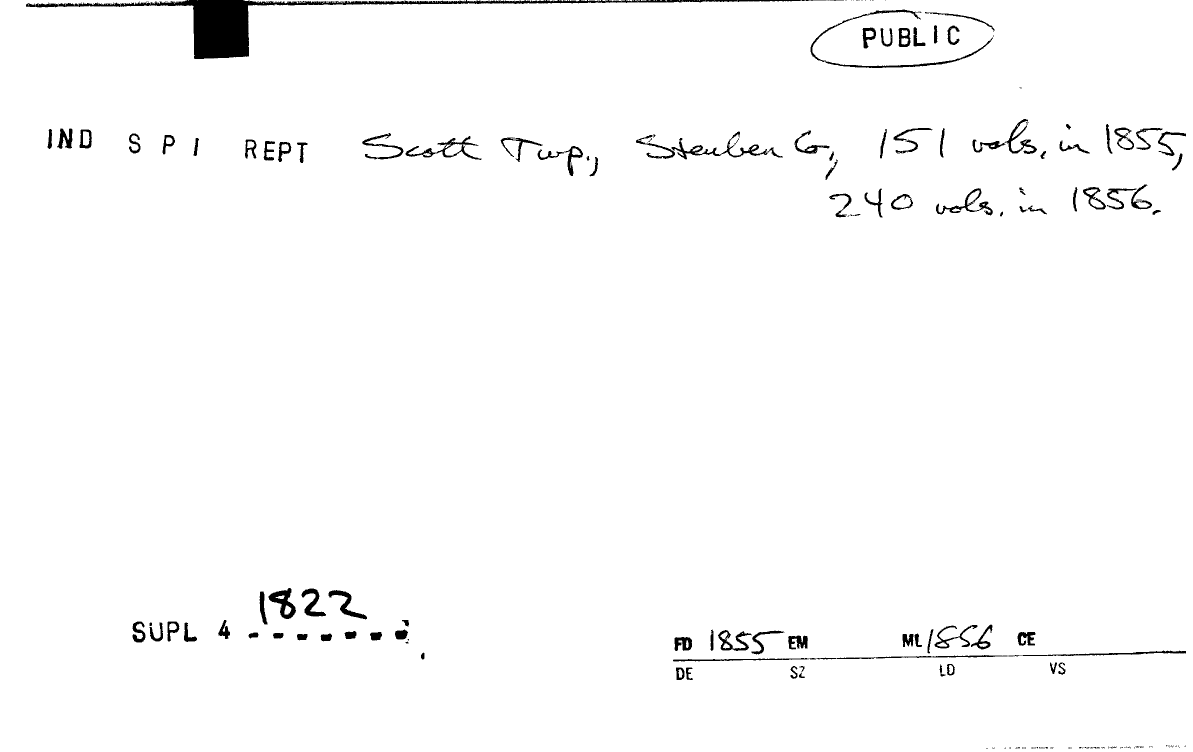 PUBLIC
IND S P I REPT Scott Twp., Steuben Co, 151 vols. in 1855,
240 vols. in 1856.
SUPL 4 1822
FD 1855 EM ML 1856 CE
DE SZ LD VS